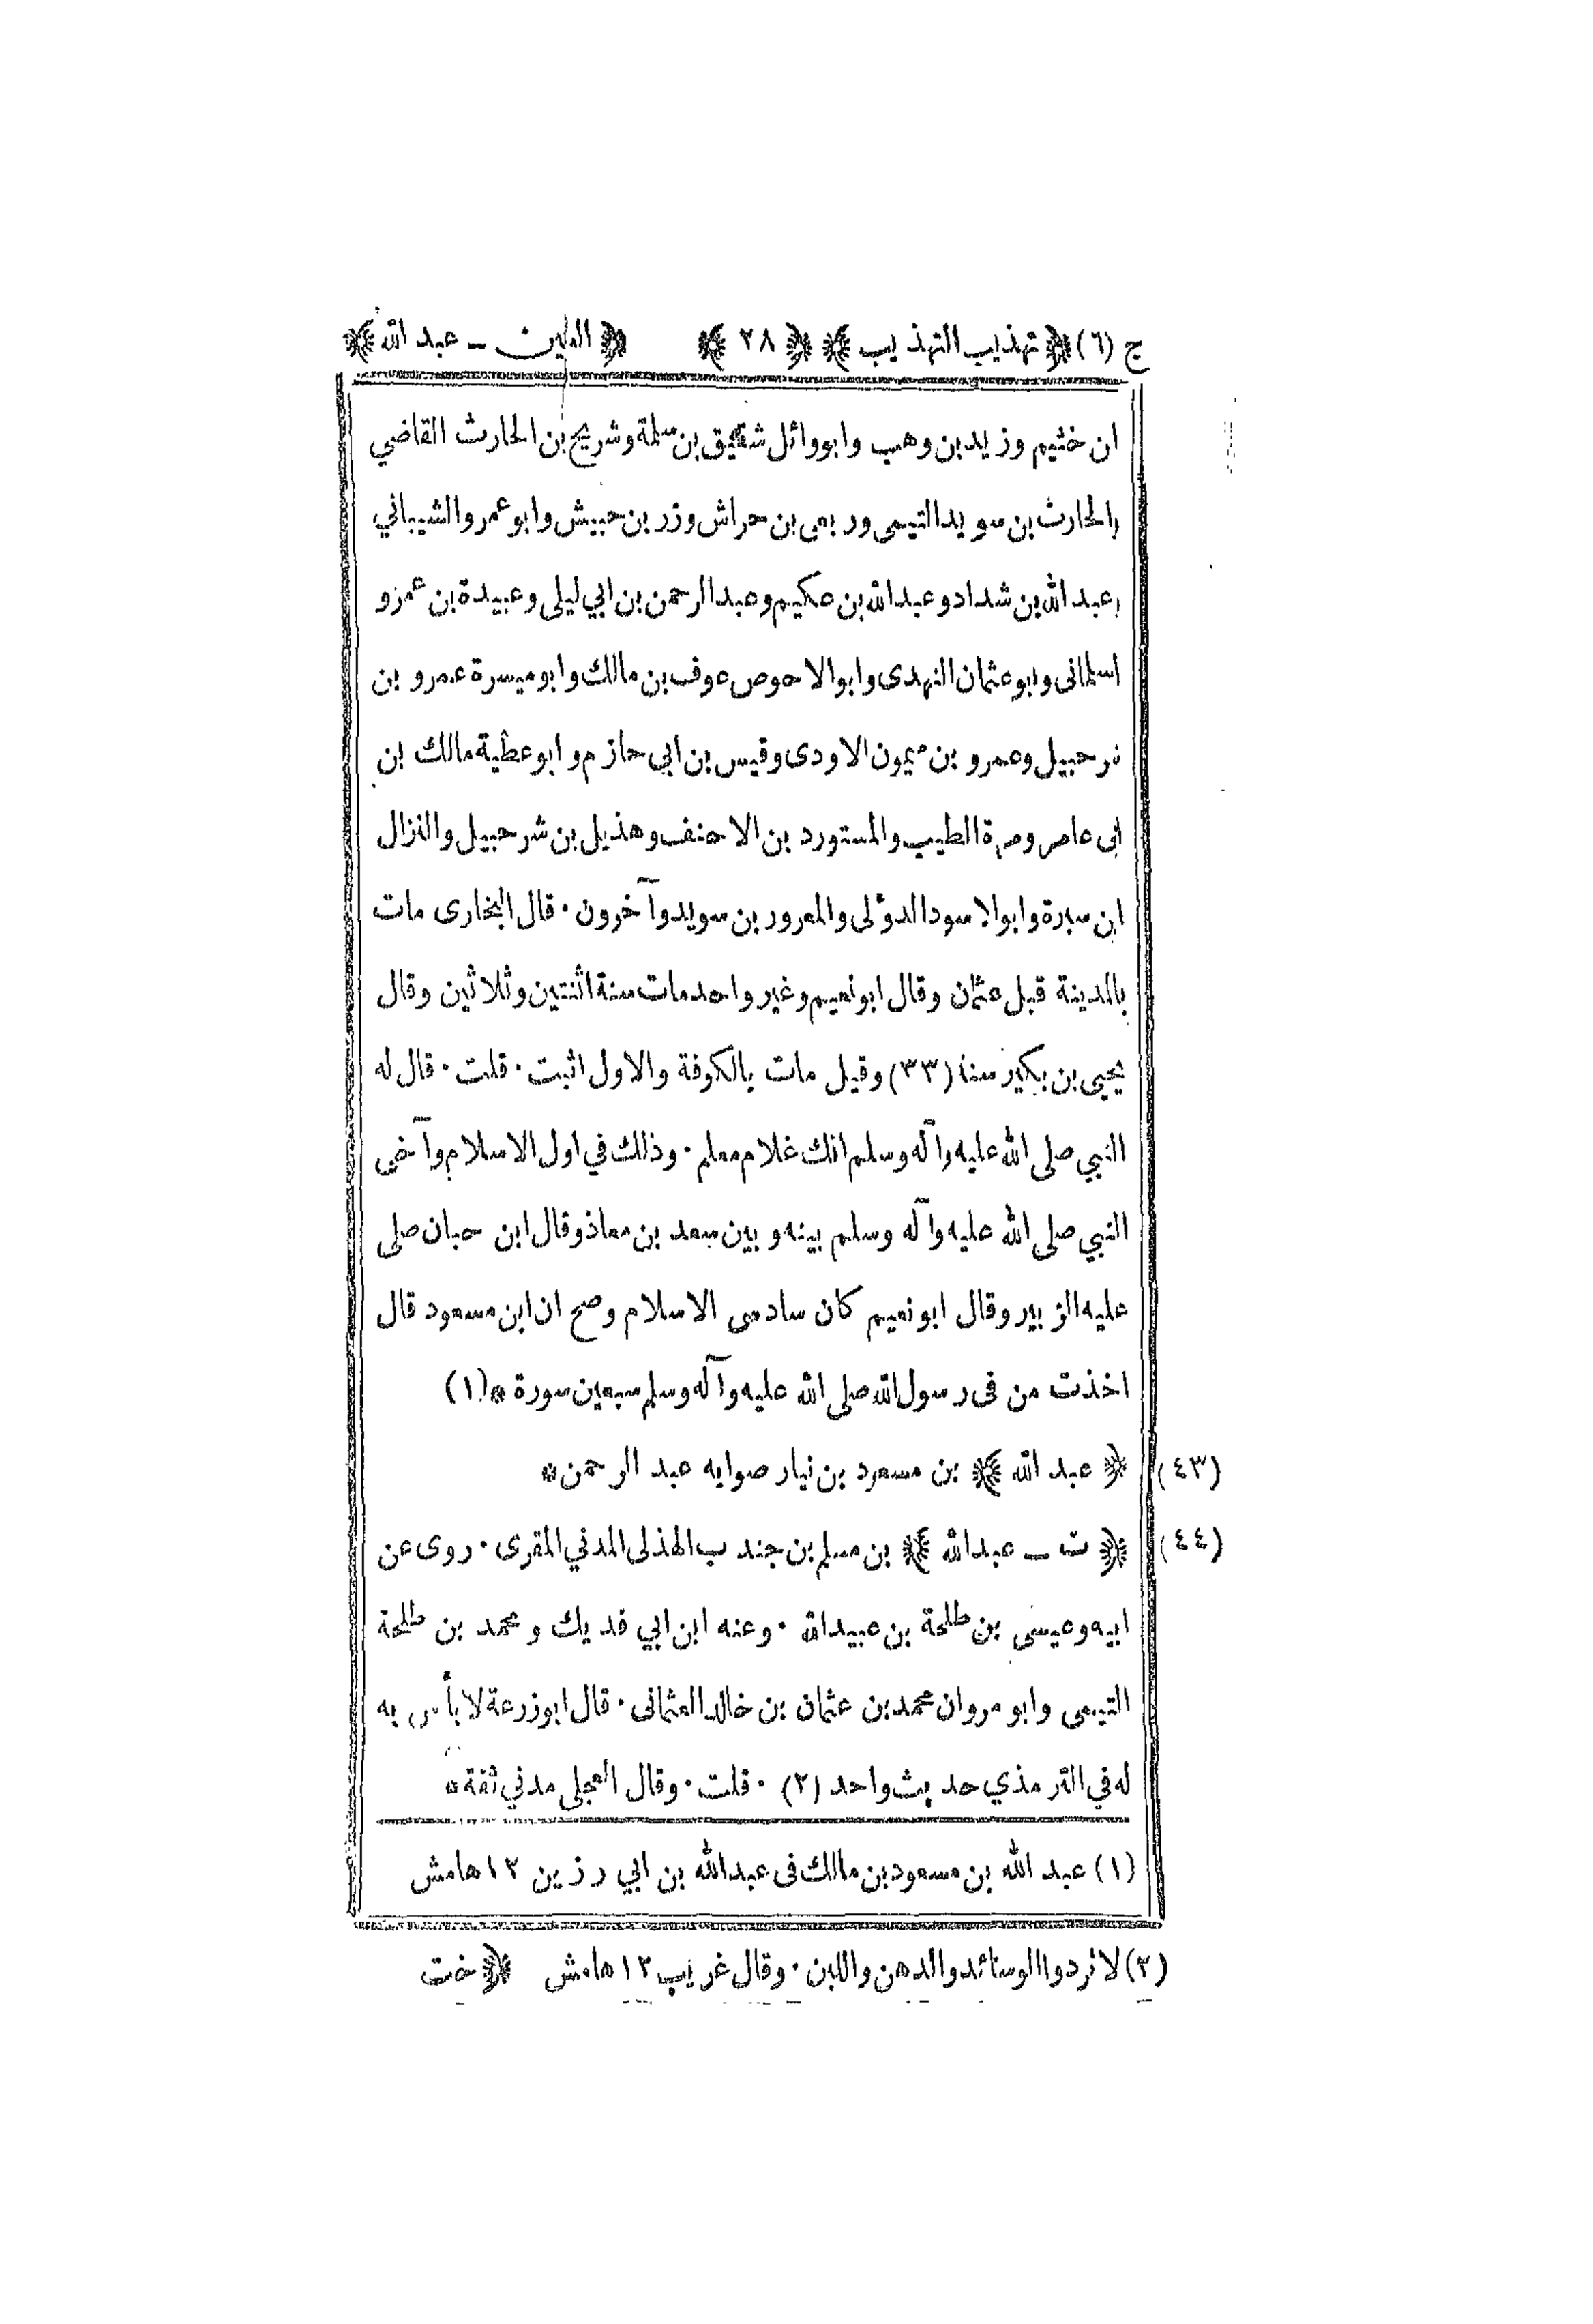 ج (٦) ﴿ تهذيب التهذيب ﴾ ﴿ ٢٨ ﴾ ﴿ العين ـ عبد الله ﴾
ان خثيم وزيد بن وهب وابو وائل شقيق بن سلمة وشريح بن الحارث القاضي
والحارث بن سويد التيمى وربعى بن حراش وزر بن حبيش وابو عمرو الشيباني
وعبد الله بن شداد وعبد الله بن عكيم وعبد الرحمن بن ابي ليلى وعبيدة بن عمرو
السلمانى وابو عثمان النهدى وابو الاحوص عوف بن مالك وابو ميسرة عمرو بن
شرحبيل وعمرو بن ميمون الاودى وقيس بن ابي حازم وابو عطية مالك بن
ابى عامر ومرة الطيب والمستورد بن الاحنف وهذيل بن شرحبيل والنزال
ابن سبرة وابو الاسود الدؤلى والمعرور بن سويد وآخرون · قال البخارى مات
بالمدينة قبل عثمان وقال ابو نعيم وغير واحد مات سنة اثنتين وثلاثين وقال
يحيى بن بكير سنة (٣٣) وقيل مات بالكوفة والاول اثبت · قلت · قال له
النبي صلى الله عليه وآله وسلم انك غلام معلم · وذلك في اول الاسلام وآخى
النبي صلى الله عليه وآله وسلم بينه وبين سعد بن معاذ وقال ابن حبان صلى
عليه الزبير وقال ابو نعيم كان سادس الاسلام وصح ان ابن مسعود قال
اخذت من فى رسول الله صلى الله عليه وآله وسلم سبعين سورة * (١)
(٤٣) ﴿ عبد الله ﴾ بن مسعود بن نيار صوابه عبد الرحمن *
(٤٤) ﴿ ت ـ عبد الله ﴾ بن مسلم بن جندب الهذلى المدني المقرى · روى عن
ابيه وعيسى بن طلحة بن عبيد الله · وعنه ابن ابي فديك ومحمد بن طلحة
التيمى وابو مروان محمد بن عثمان بن خالد العثمانى · قال ابو زرعة لا بأس به
له في الترمذي حديث واحد (٢) · قلت · وقال العجلى مدني ثقة *
(١) عبد الله بن مسعود بن مالك فى عبد الله بن ابي رزين ١٢ هامش
(٢) لا تردوا الوسائد والدهن واللبن · وقال غريب ١٢ هامش ﴿ خت